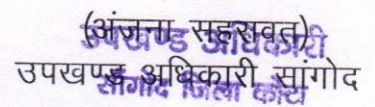 (अंजना सहरावत)
उपखण्ड अधिकारी
उपखण्ड अधिकारी सांगोद
सांगोद जिला कोटा